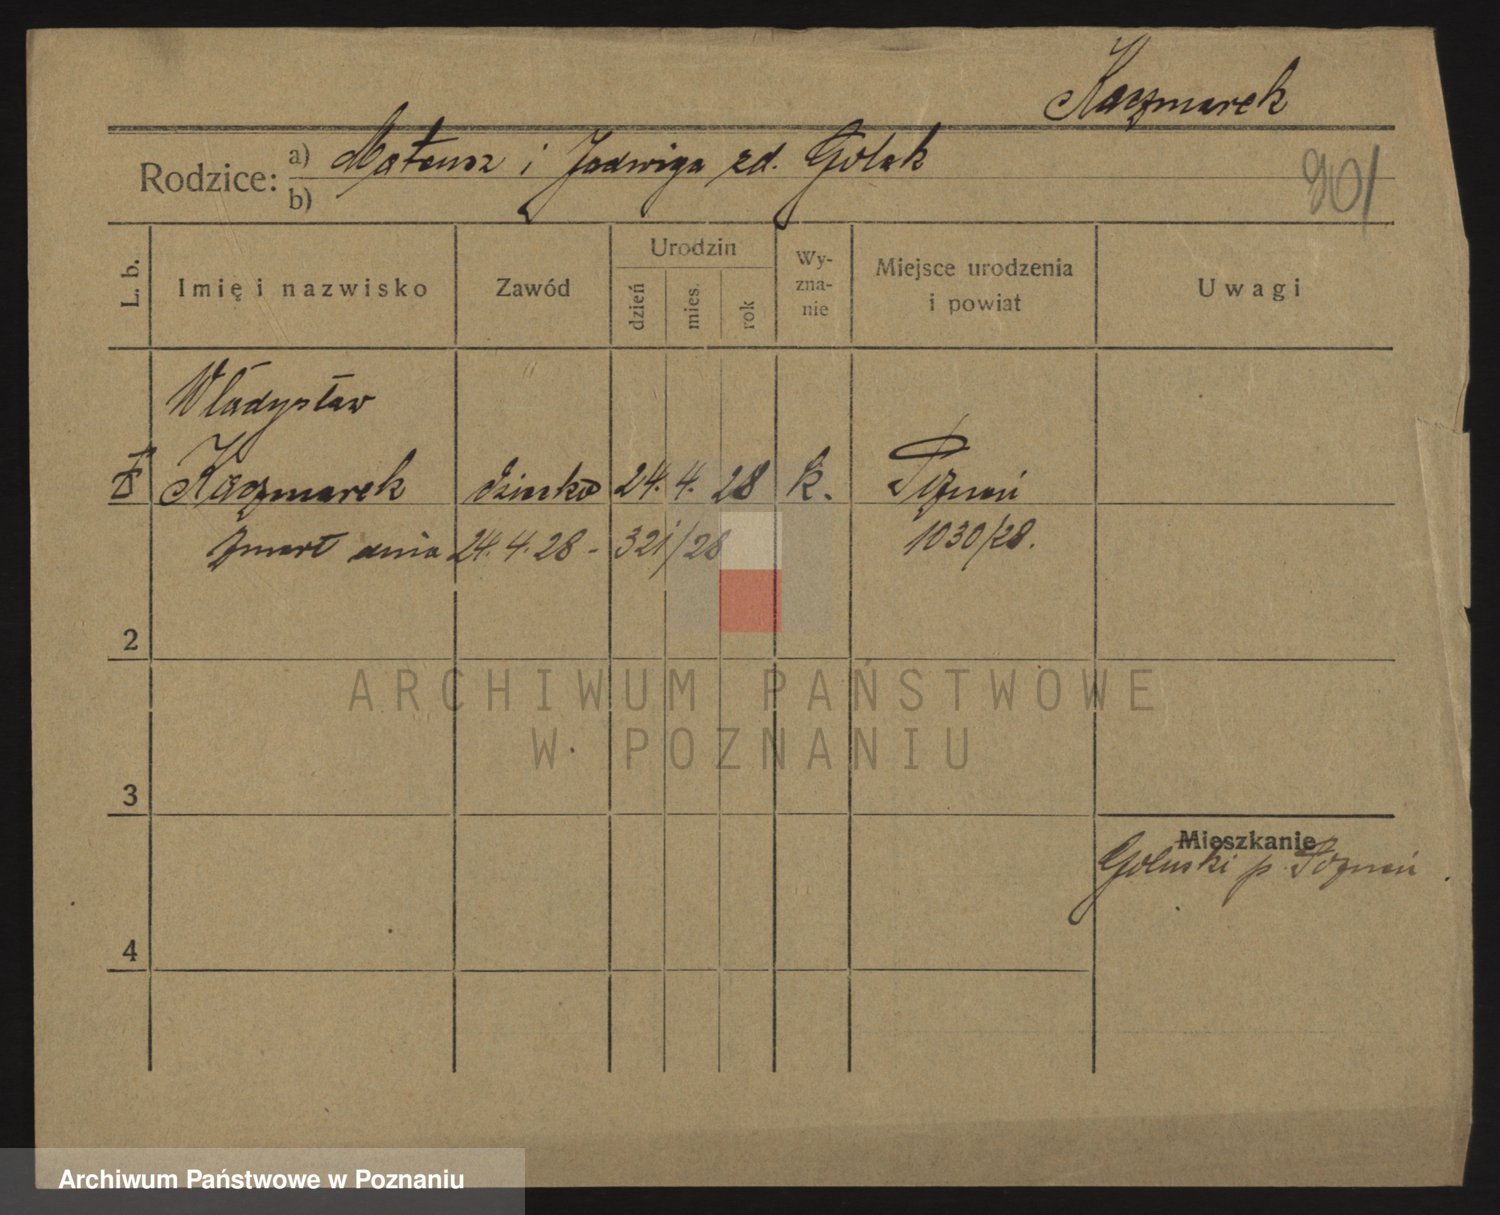 Kaczmarek
Rodzice: a) Mateusz i Jadwiga zd. Golak
b)
901
L. b. Imię i nazwisko Zawód Urodzin dzień mies. rok Wy-zna-nie Miejsce urodzenia i powiat Uwagi
Władysław
Kaczmarek dziecko 24. 4. 28 k. Poznań
zmarł dnia 24.4.28 - 321/28 1030/28.
2
ARCHIWUM PAŃSTWOWE
W POZNANIU
3
Mieszkanie
p. Poznań
4
Archiwum Państwowe w Poznaniu